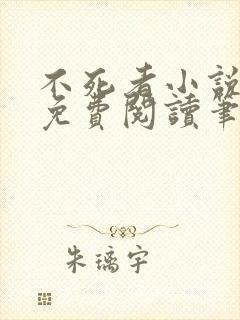 不死者小說
免費閱讀筆
朱璃宇